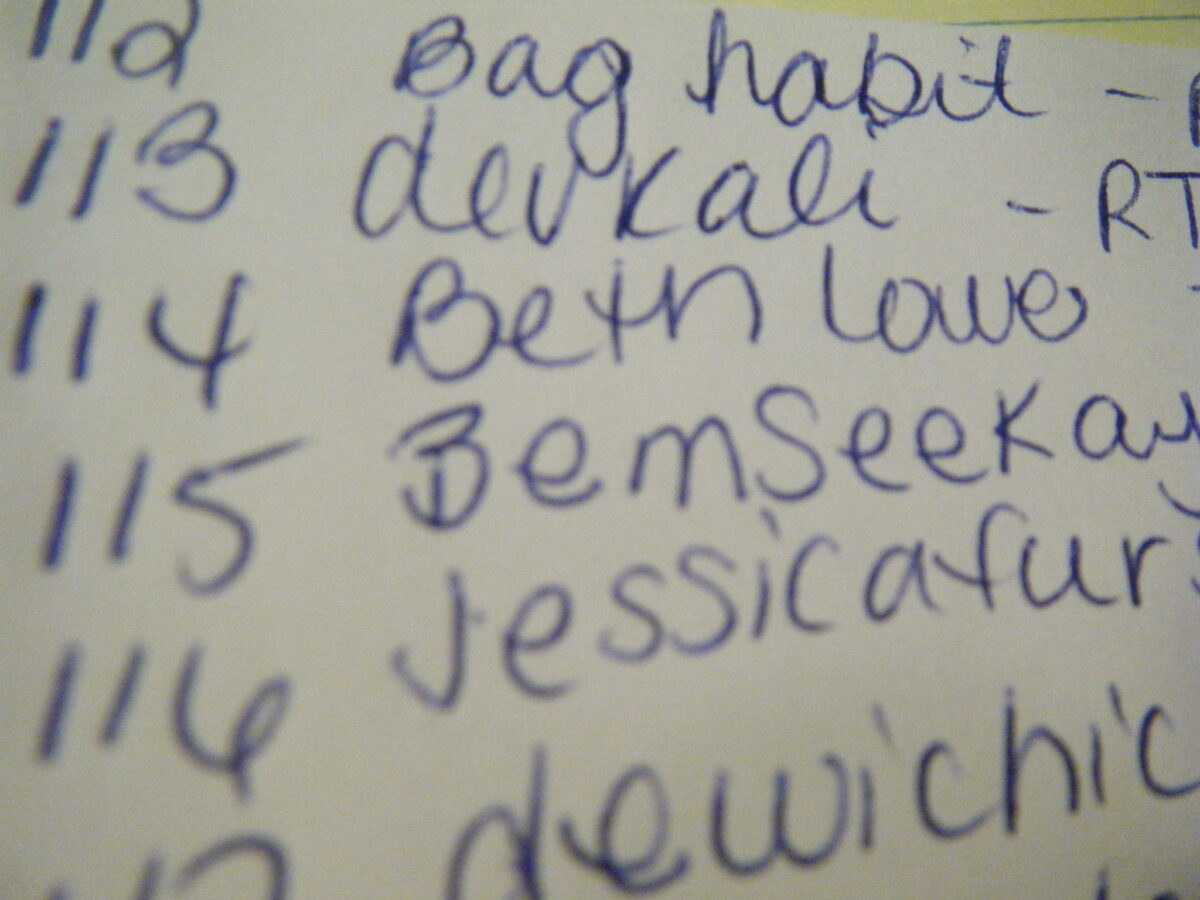 112 Bag habit -
113 devkali - RT
114 Beth Lowe -
115 BemSeekay
116 Jessicafurs
117 dewichic